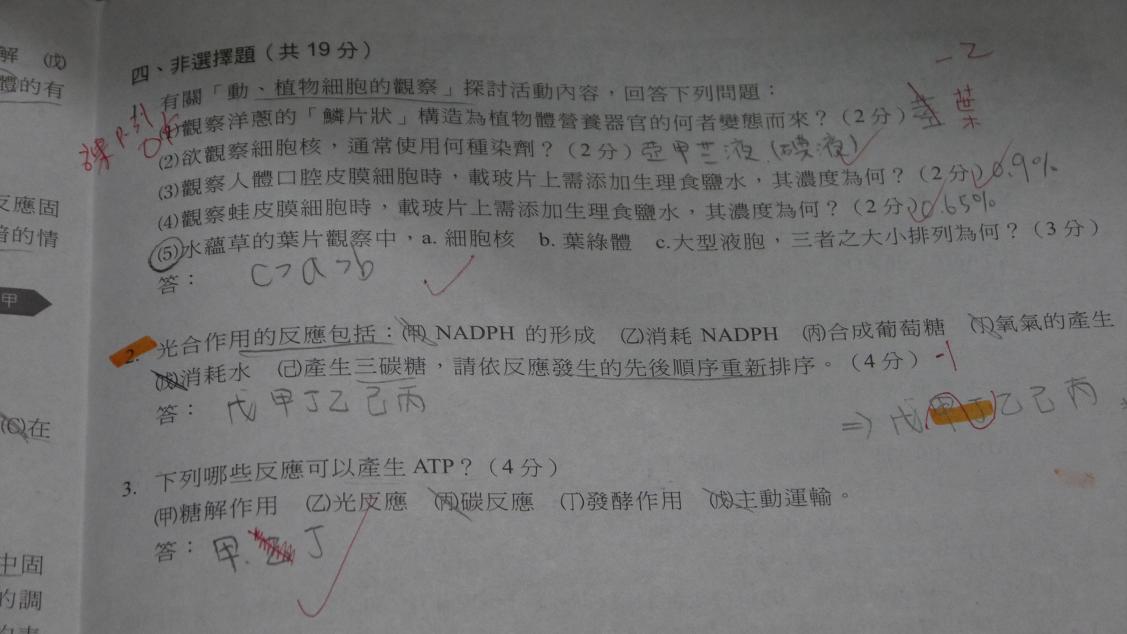 解 ㈥
體的有
反應固
答的情
甲
(C)在
中固
的調
四、非選擇題（共 19 分）
-2
1. 有關「動、植物細胞的觀察」探討活動內容，回答下列問題：
(1)觀察洋蔥的「鱗片狀」構造為植物體營養器官的何者變態而來？（2 分）莖 葉
(2)欲觀察細胞核，通常使用何種染劑？（2 分）亞甲藍液（碘液）
(3)觀察人體口腔皮膜細胞時，載玻片上需添加生理食鹽水，其濃度為何？（2 分）0.9%
(4)觀察蛙皮膜細胞時，載玻片上需添加生理食鹽水，其濃度為何？（2 分）0.65%
(5)水蘊草的葉片觀察中，a. 細胞核 b. 葉綠體 c.大型液胞，三者之大小排列為何？（3 分）
答： c>a>b
2. 光合作用的反應包括：(甲) NADPH 的形成 (乙)消耗 NADPH (丙)合成葡萄糖 (丁)氧氣的產生
(戊)消耗水 (己)產生三碳糖，請依反應發生的先後順序重新排序。（4 分）-1
答： 戊甲丁乙己丙
⇒ 戊甲丁乙己丙
3. 下列哪些反應可以產生 ATP？（4 分）
(甲)糖解作用 (乙)光反應 (丙)碳反應 (丁)發酵作用 (戊)主動運輸。
答： 甲. 乙 丁